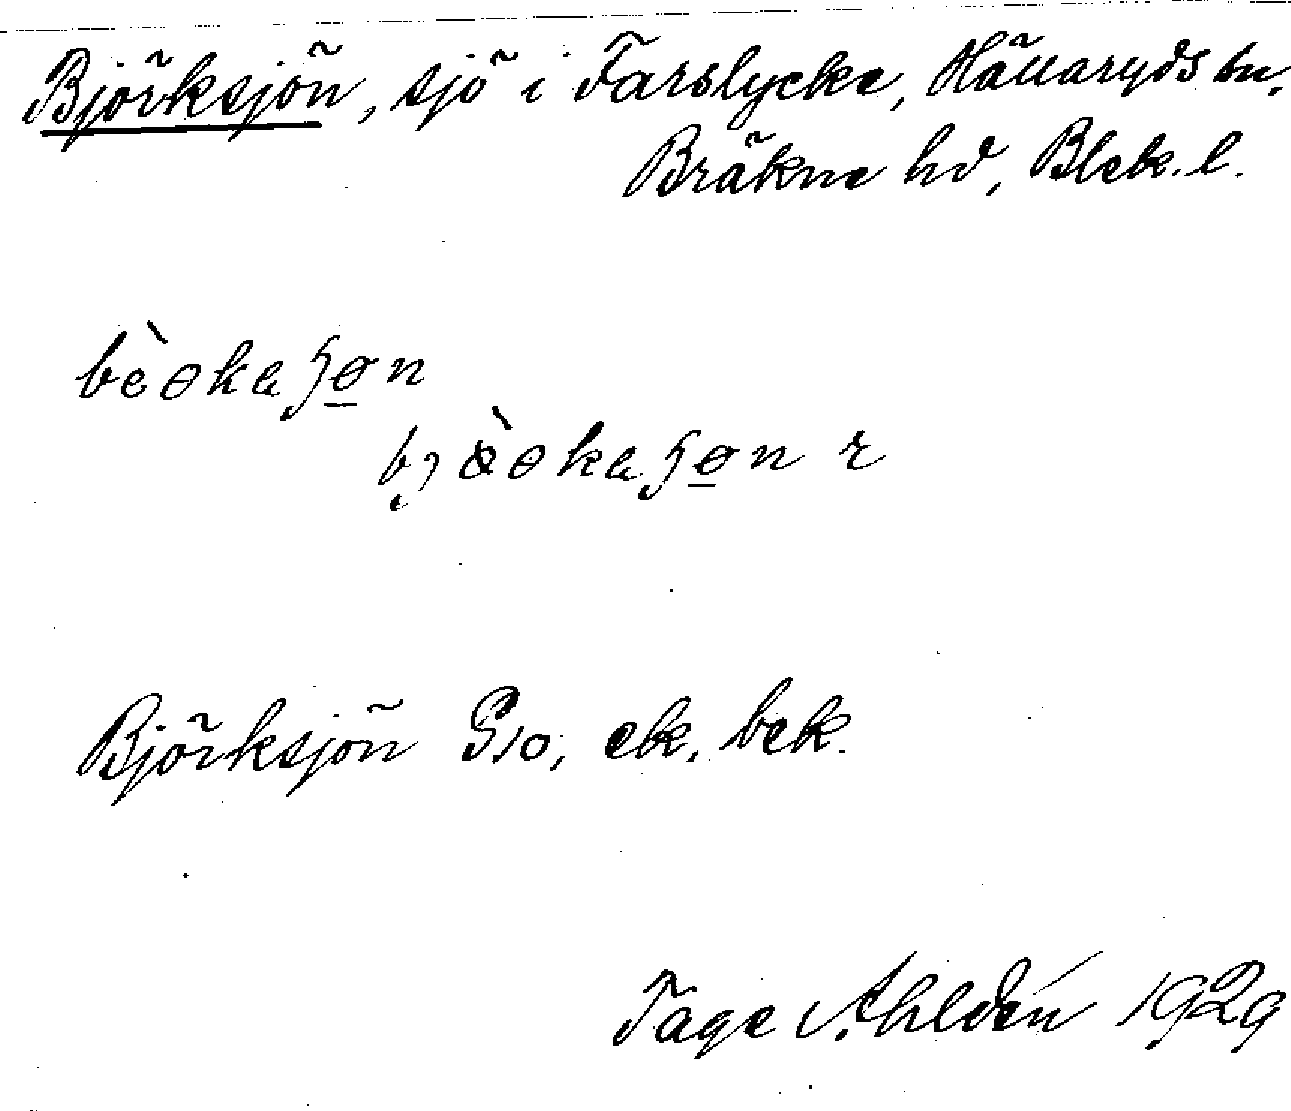 Björksjön, sjö i Farslycke, Hällaryds sn,
Bräkne hd, Blek. l.
Björksjön G10, ek, bek.
Tage Ahldén 1929